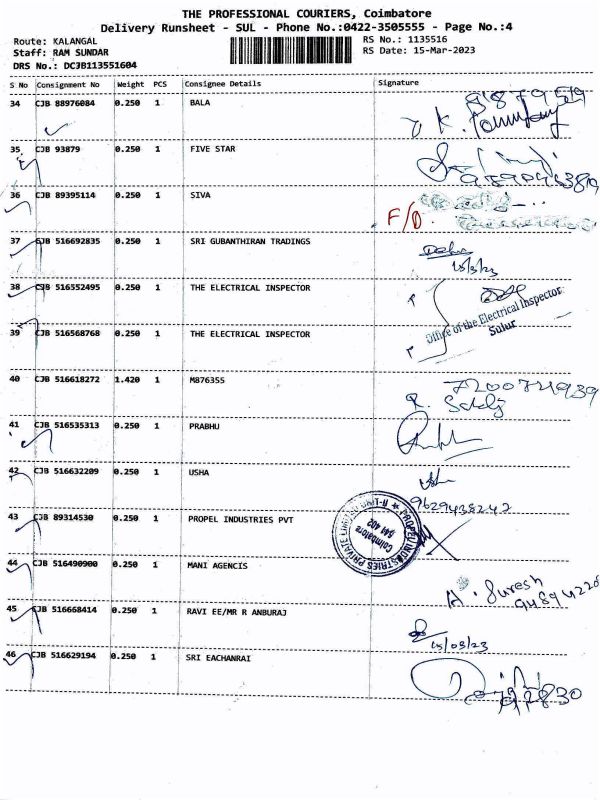 THE PROFESSIONAL COURIERS, Coimbatore
Delivery Runsheet - SUL - Phone No.:0422-3505555 - Page No.:4
Route: KALANGAL
RS No.: 1135516
Staff: RAM SUNDAR
RS Date: 15-Mar-2023
DRS No.: DCJB113551604
S No Consignment No Weight PCS Consignee Details Signature
34 CJB 88976084 0.250 1 BALA
35 CJB 93879 0.250 1 FIVE STAR
36 CJB 89395114 0.250 1 SIVA
F/D.
37 CJB 516692835 0.250 1 SRI GUBANTHIRAN TRADINGS
15/3/23
38 CJB 516552495 0.250 1 THE ELECTRICAL INSPECTOR
Office of the Electrical Inspector
Sulur
39 CJB 516568768 0.250 1 THE ELECTRICAL INSPECTOR
40 CJB 516618272 1.420 1 M876355
41 CJB 516535313 0.250 1 PRABHU
42 CJB 516632209 0.250 1 USHA
9629438242
43 CJB 89314530 0.250 1 PROPEL INDUSTRIES PVT
PROPEL INDUSTRIES PRIVATE LIMITED UNIT-II
Coimbatore
641 402
44 CJB 516490900 0.250 1 MANI AGENCIS
A. Suresh
45 CJB 516668414 0.250 1 RAVI EE/MR R ANBURAJ
15/03/23
46 CJB 516629194 0.250 1 SRI EACHANRAI